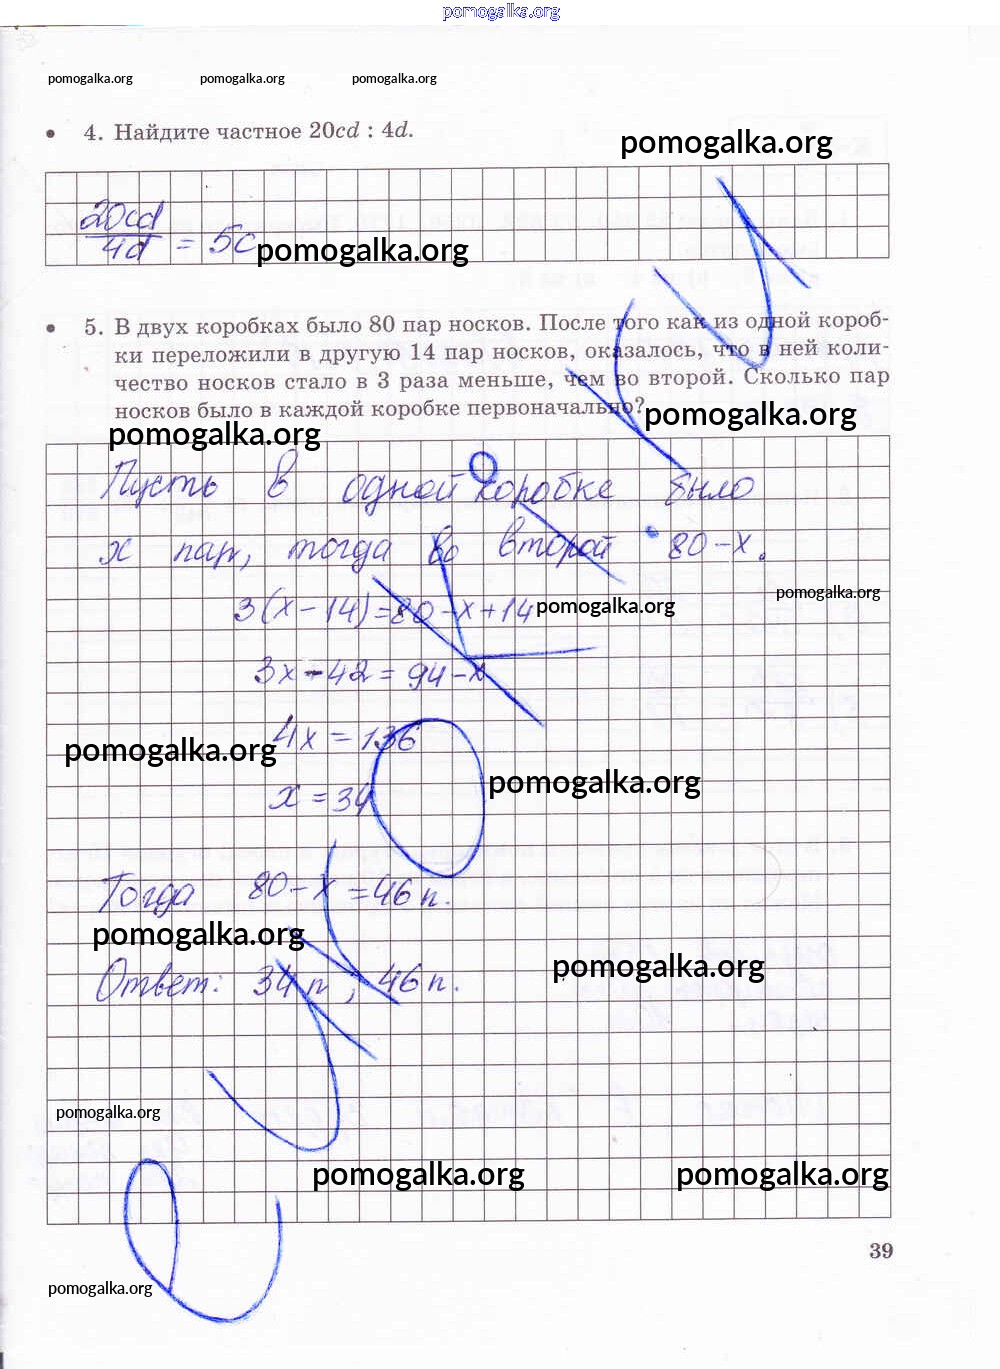 pomogalka.org
pomogalka.org pomogalka.org pomogalka.org
• 4. Найдите частное 20cd : 4d.
pomogalka.org
20cd
4d = 5c
pomogalka.org
• 5. В двух коробках было 80 пар носков. После того как из одной короб-
ки переложили в другую 14 пар носков, оказалось, что в ней коли-
чество носков стало в 3 раза меньше, чем во второй. Сколько пар
носков было в каждой коробке первоначально?
pomogalka.org
pomogalka.org
Пусть в одной коробке было
x пар, тогда во второй 80 – x.
pomogalka.org
3(x – 14) = 80 – x + 14
pomogalka.org
3x – 42 = 94 – x
4x = 136
pomogalka.org
pomogalka.org
x = 34
Тогда 80 – x = 46 п.
pomogalka.org
pomogalka.org
Ответ: 34 п ; 46 п.
pomogalka.org
pomogalka.org pomogalka.org
39
pomogalka.org